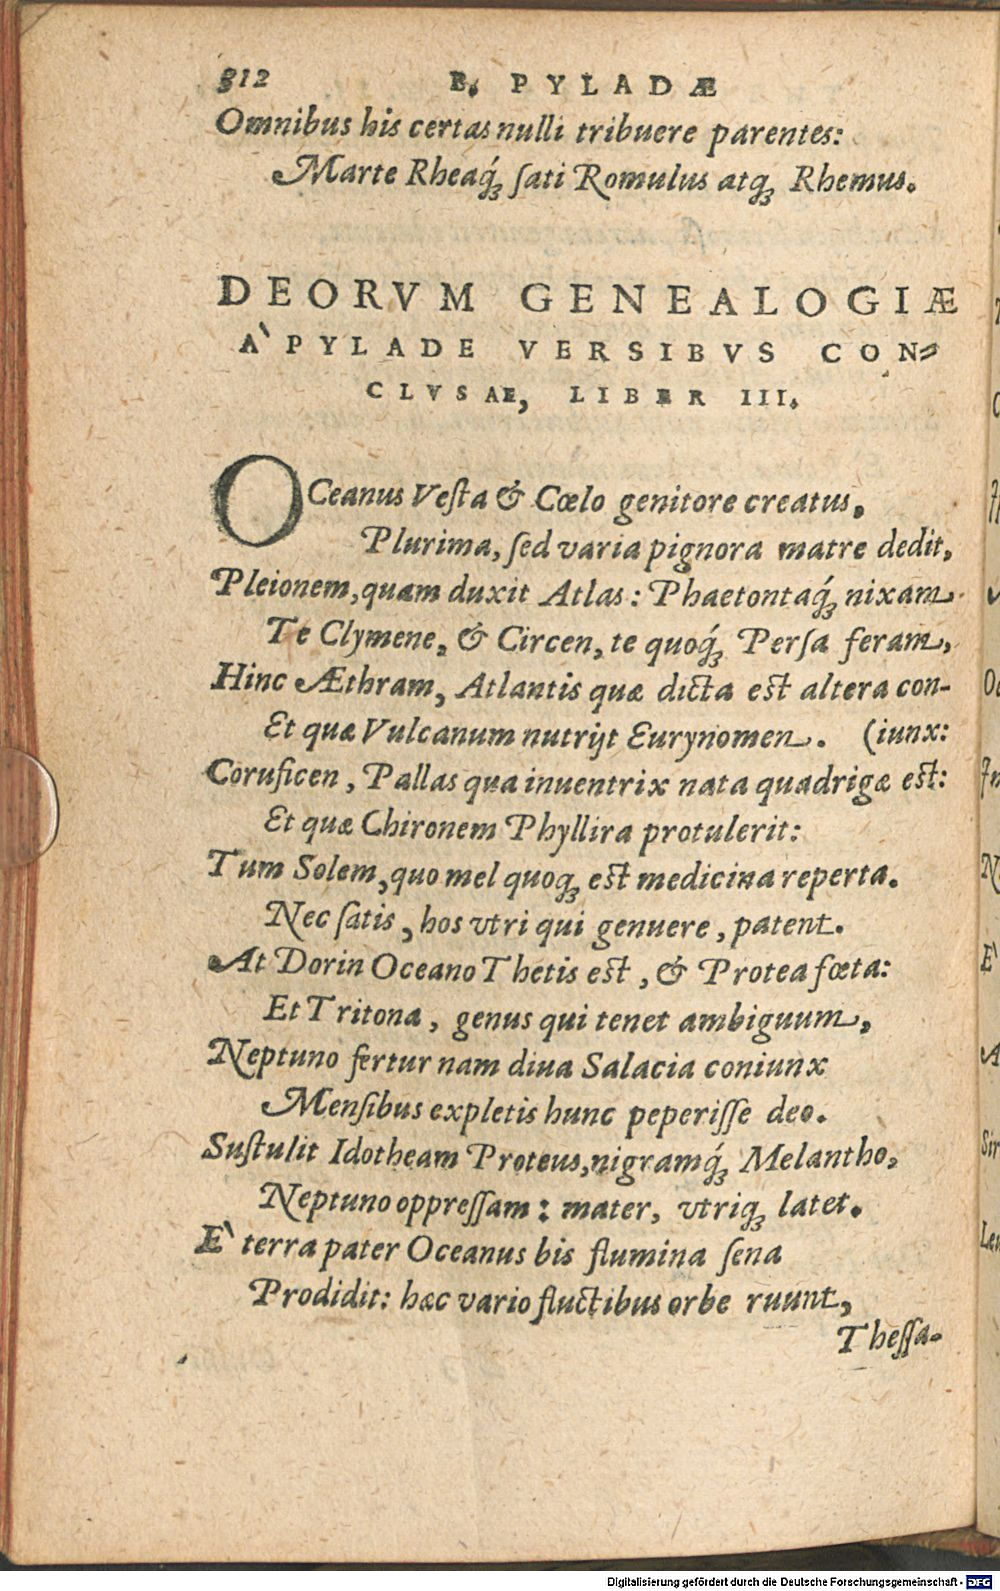 312 B. PYLADÆ
Omnibus his certas nulli tribuere parentes:
Marte Rheaq́ꝫ ſati Romulus atqꝫ Rhemus.
DEORVM GENEALOGIÆ
A` PYLADE VERSIBVS CON⸗
CLVSAE, LIBER III.
OCeanus Veſta & Cœlo genitore creatus,
Plurima, ſed varia pignora matre dedit,
Pleionem, quam duxit Atlas: Phaetontaq́ꝫ nixam
Te Clymene, & Circen, te quoq́ꝫ Perſa feram,
Hinc Æthram, Atlantis quæ dicta est altera con-
Et quæ Vulcanum nutrijt Eurynomen. (iunx:
Coruficen, Pallas qua inuentrix nata quadrigæ est:
Et quæ Chironem Phyllira protulerit:
Tum Solem, quo mel quoqꝫ est medicina reperta.
Nec ſatis, hos vtri qui genuere, patent.
At Dorin Oceano Thetis est, & Protea fœta:
Et Tritona, genus qui tenet ambiguum,
Neptuno fertur nam diua Salacia coniunx
Menſibus expletis hunc peperiſſe deo.
Suſtulit Idotheam Proteus, nigramq́ꝫ Melantho,
Neptuno oppreſſam: mater, vtriqꝫ latet.
E` terra pater Oceanus bis flumina ſena
Prodidit: hæc vario fluctibus orbe ruunt,
Theſſa-
Digitalisierung gefördert durch die Deutsche Forschungsgemeinschaft - DFG